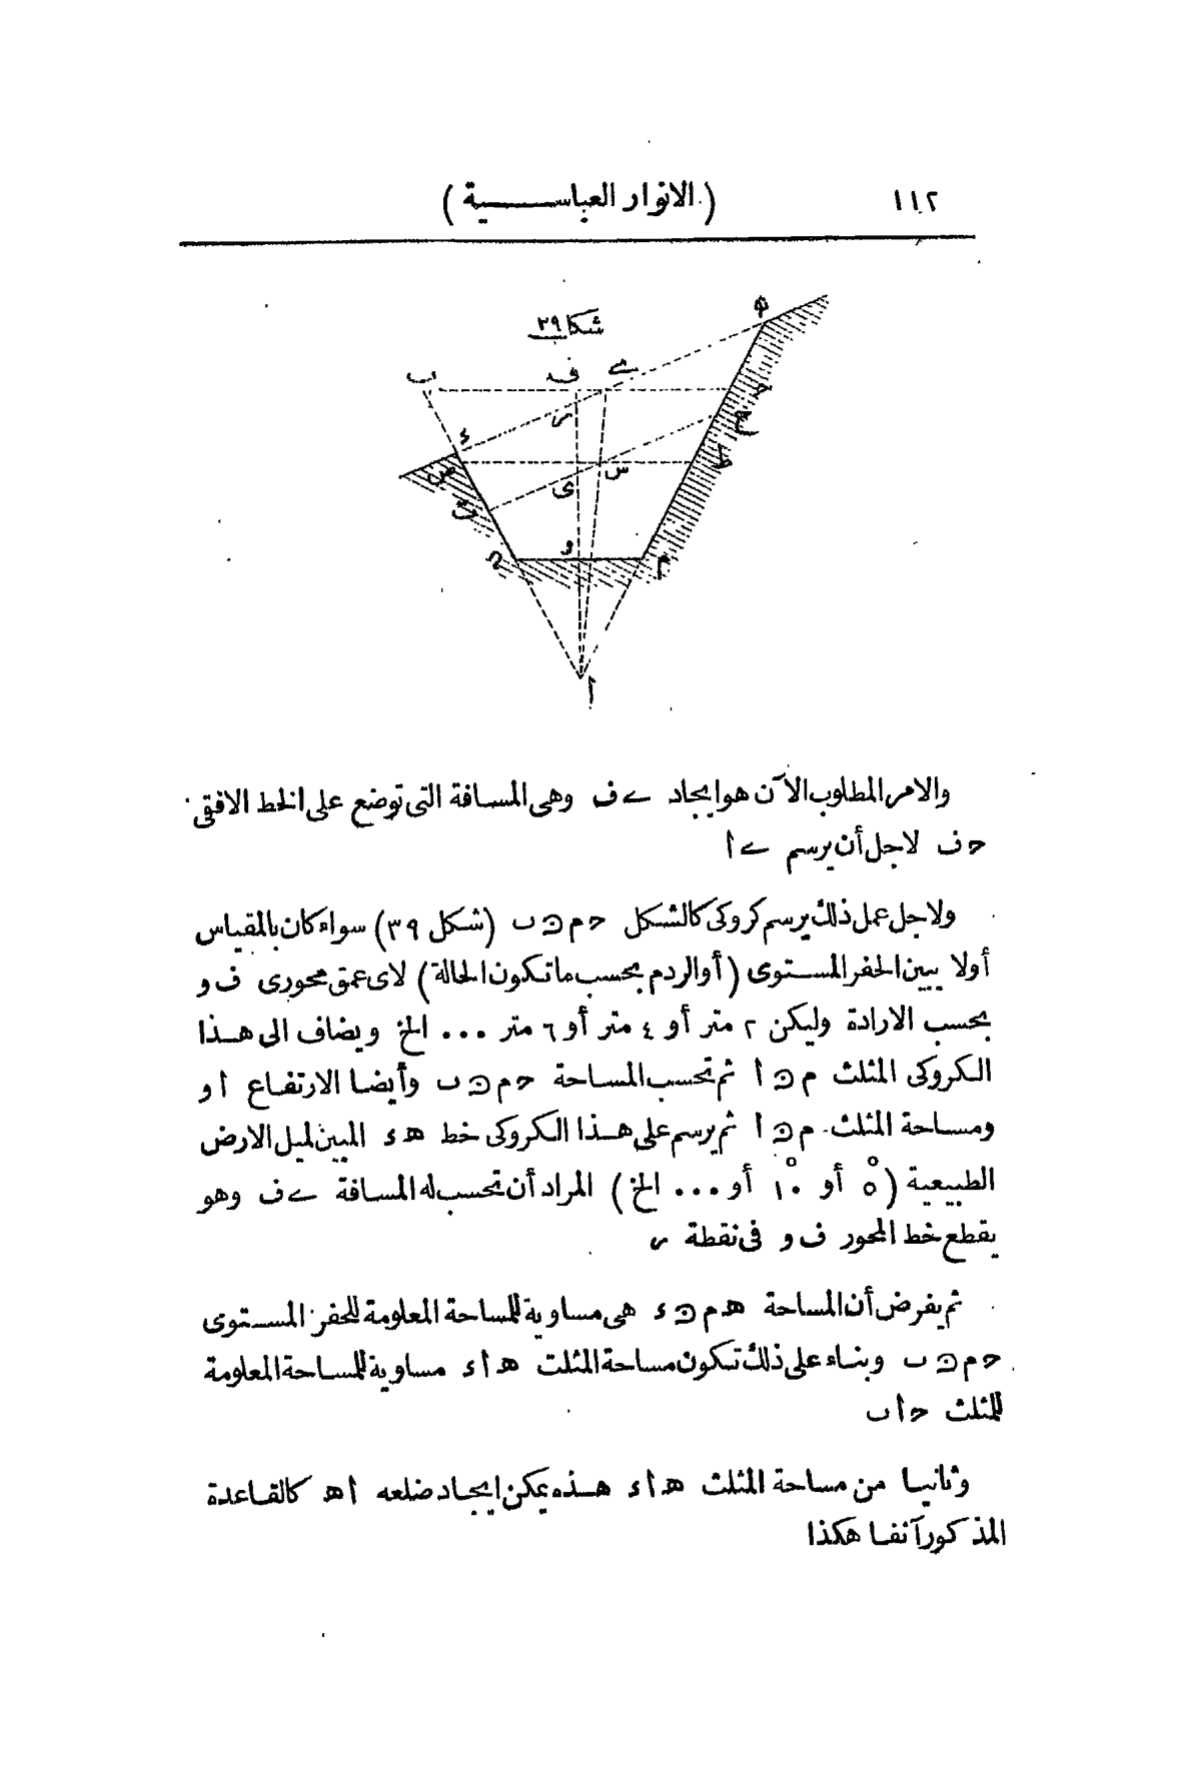 ١١٢ (الانوار العباسـية)
شكل ٣٩
ه
ف ے
ب
ح
ر
ء
ج
ص
س
ط
ى
ت
و
ن
م
أ
والامر المطلوب الآن هو ايجاد ے ف وهى المسافة التى توضع على الخط الافقى
ح ف لاجل أن يرسم ے أ
ولاجل عمل ذلك يرسم كروكى كالشكل ح م ن ب (شكل ٣٩) سواء كان بالمقياس
أولا يبين الحفر المستوى (أو الردم بحسب ما تكون الحالة) لاى عمق محورى ف و
بحسب الارادة وليكن ٢ متر أو ٤ متر أو ٦ متر ... الخ ويضاف الى هذا
الكروكى المثلث م ن أ ثم تحسب المساحة ح م ن ب وأيضا الارتفاع أ و
ومساحة المثلث م ن أ ثم يرسم على هذا الكروكى خط ه ء المبين لميل الارض
الطبيعية (٥° أو ١٠° أو ... الخ) المراد أن تحسب له المسافة ے ف وهو
يقطع خط المحور ف و فى نقطة ر
ثم يفرض أن المساحة ه م ن ء هى مساوية للمساحة المعلومة للحفر المستوى
ح م ن ب وبناء على ذلك تكون مساحة المثلث ه أ ء مساوية للمساحة المعلومة
للمثلث ح أ ب
وثانيا من مساحة المثلث ه أ ء هذه يمكن ايجاد ضلعه أ ه كالقاعدة
المذكور آنفا هكذا